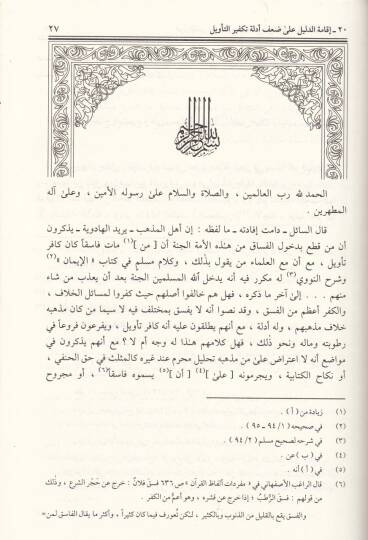 ٢٠ - إقامة الدليل على ضعف أدلة تكفير التأويل ٢٧
الحمد لله رب العالمين ، والصلاة والسلام على رسوله الأمين ، وعلى آله
المطهرين .
قال السائل - دامت إفادته - ما لفظه : إن أهل المذهب - يريد الهادوية - يذكرون
أن من قطع بدخول الفساق من هذه الأمة الجنة أن [ من ](١) مات فاسقاً كان كافر
تأويل ، مع أن مع العلماء من يقول بذلك ، وكلام مسلم في كتاب « الإيمان »(٢)
وشرح النووي(٣) له مكرر فيه أنه يدخل الله المسلمين الجنة بعد أن يعذب من شاء
منهم . . . إلى آخر ما ذكره ، فهل هم خالفوا أصلهم حيث كفروا لمسائل الخلاف ،
والكفر أعظم من الفسق ، وقد نصوا أنه لا يفسق بمختلف فيه لا سيما من كان مذهبه
خلاف مذهبهم ، وله أدلة ، مع أنهم يطلقون عليه أنه كافر تأويل ، ويفرعون فروعاً في
رطوبته وماله ونحو ذلك ، فهل كلامهم هذا له وجه أم لا ؟ مع أنهم يذكرون في
مواضع أنه لا اعتراض على من مذهبه تحليل محرم عند غيره كالمثلث في حق الحنفي ،
أو نكاح الكتابية ، ويجرمونه [ على ](٤) [ أن ](٥) يسموه فاسقاً(٦) ، أو مجروح
(١) زيادة من ( أ ) .
(٢) في صحيحه ( ١/ ٩٤ - ٩٥ ) .
(٣) في شرحه لصحيح مسلم ( ٢/ ٩٤ ) .
(٤) في ( ب ) عن .
(٥) في ( أ ) أنه .
(٦) قال الراغب الأصفهاني في « مفردات ألفاظ القرآن » ص ٦٣٦ فسق فلانٌ : خرج عن حَجْر الشرع ، وذلك
من قولهم : فسق الرُّطَبُ ؛ إذا خرج عن قشره ، وهو أعمُّ من الكفر .
والفسق يقع بالقليل من الذنوب وبالكثير ، لكن تُعورف فيما كان كثيراً ، وأكثر ما يقال الفاسق لمن =